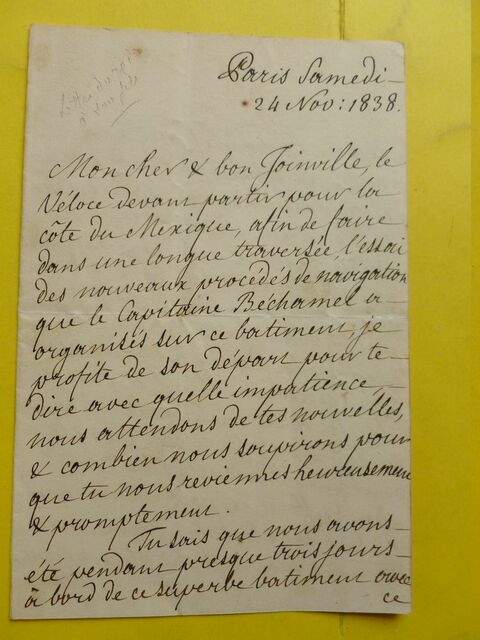 Lettre du roi
à son fils
Paris Samedi
24 Nov: 1838.
Mon cher & bon Joinville, le
Véloce devant partir pour la
côte du Mexique, afin de faire
dans une longue traversée, l'essai
des nouveaux procédés de navigation
que le Capitaine Béchamel a
organisés sur ce batiment, je
profite de son départ pour te
dire avec quelle impatience,
nous attendons de tes nouvelles,
& combien nous soupirons pour
que tu nous reviennes heureusement
& promptement.
Tu sais que nous avons
été pendant presque trois jours
à bord de ce superbe batiment avec
ce